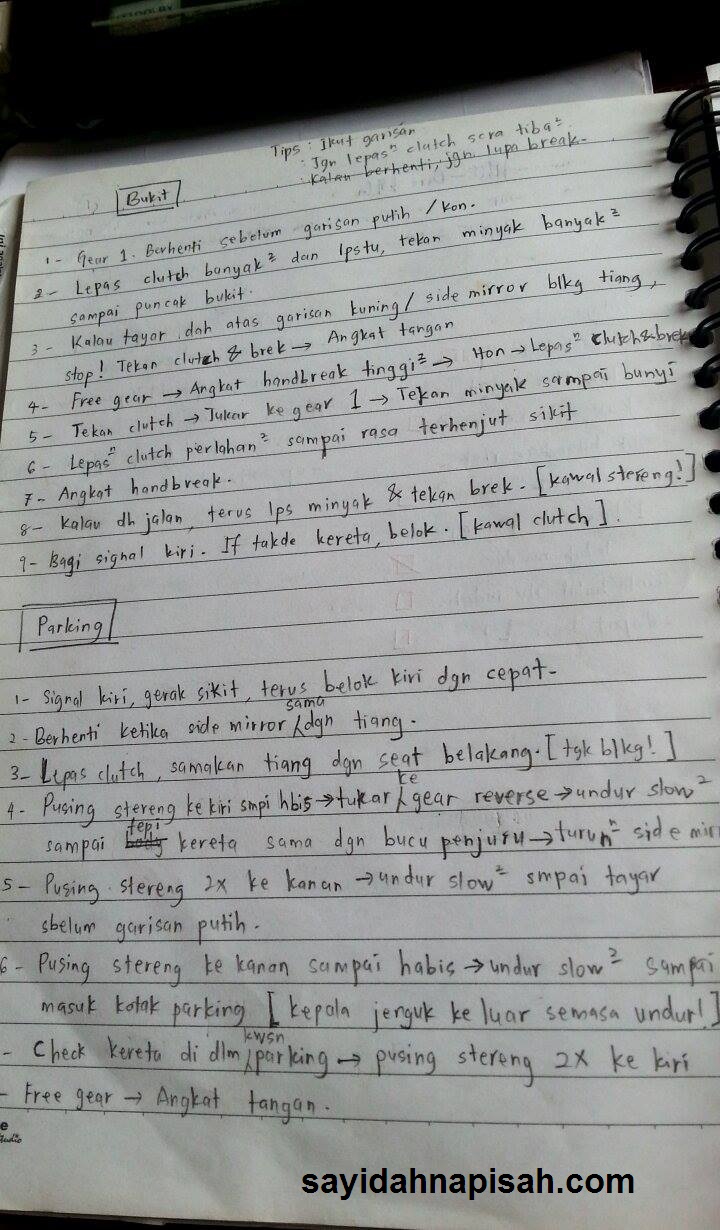 Tips : Ikut garisan
: Jgn lepasⁿ clutch scra tiba²
: Kalau berhenti, jgn lupa break.
1) Bukit
1- Gear 1. Berhenti sebelum garisan putih / kon.
2- Lepas clutch banyak² dan lpstu, tekan minyak banyak²
sampai puncak bukit.
3- Kalau tayar dah atas garisan kuning / side mirror blkg tiang,
stop! Tekan clutch & brek → Angkat tangan
4- Free gear → Angkat handbreak tinggi² → Hon → Lepasⁿ clutch & brek
5- Tekan clutch → Tukar ke gear 1 → Tekan minyak sampai bunyi
6- Lepasⁿ clutch perlahan² sampai rasa terhenjut sikit
7- Angkat handbreak.
8- Kalau dh jalan, terus lps minyak & tekan brek. [kawal stereng!]
9- Bagi signal kiri. If takde kereta, belok. [kawal clutch].
Parking
1- Signal kiri, gerak sikit, terus belok kiri dgn cepat-
2- Berhenti ketika side mirror sama dgn tiang.
3- Lepas clutch, samakan tiang dgn seat belakang. [tgk blkg!]
4- Pusing stereng ke kiri smpi hbis → tukar ke gear reverse → undur slow²
sampai tepi kereta sama dgn bucu penjuru → turunⁿ side mirr
5- Pusing stereng 2x ke kanan → undur slow² smpai tayar
sbelum garisan putih.
6- Pusing stereng ke kanan sampai habis → undur slow² sampai
masuk kotak parking [kepala jenguk ke luar semasa undur!]
- Check kereta di dlm kwsn parking → pusing stereng 2x ke kiri
- Free gear → Angkat tangan.
sayidahnapisah.com